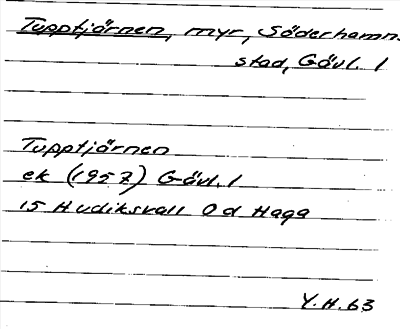 Tupptjärnen, myr, Söderhamns
stad, Gävl. l
Tupptjärnen
ek (1957) Gävl. l
15 Hudiksvall Od Haga
Y.H.63